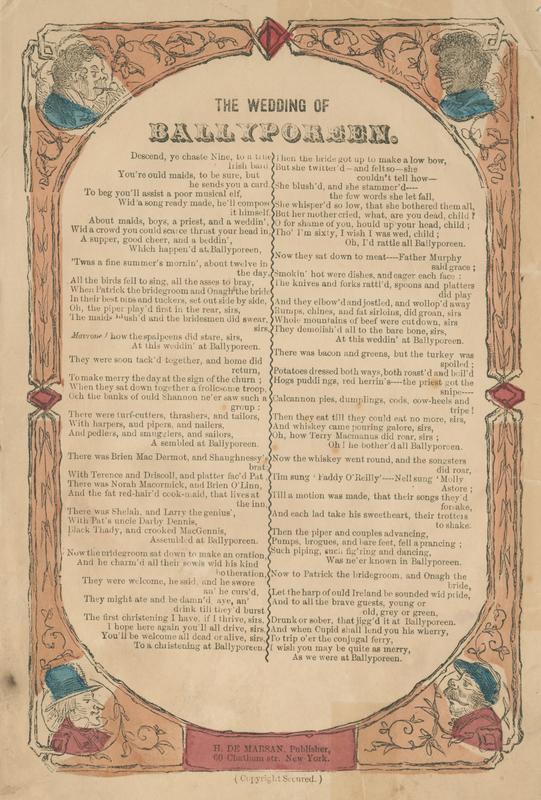 THE WEDDING OF
BALLYPOREEN.
Descend, ye chaste Nine, to a true
Irish bard
You're ould maids, to be sure, but
he sends you a card
To beg you'll assist a poor musical elf,
Wid a song ready made, he'll compose
it himself
About maids, boys, a priest, and a weddin',
Wid a crowd you could scarce thrust your head in,
A supper, good cheer, and a beddin',
Which happen'd at Ballyporeen,
'Twas a fine summer's mornin', about twelve in
the day,
All the birds fell to sing, all the asses to bray,
When Patrick the bridegroom and Onagh the bride
In their best bibs and tuckers, set out side by side,
Oh, the piper play'd first in the rear, sirs,
The maids blush'd and the bridesmen did swear,
sirs,
Marrow! how the spalpeens did stare, sirs,
At this weddin' at Ballyporeen.
They were soon tack'd together, and home did
return,
To make merry the day at the sign of the churn;
When they sat down together a frolicsome troop,
Och the banks of ould Shannon ne'er saw such a
group:
There were turf-cutters, thrashers, and tailors,
With harpers, and pipers, and nailers,
And pedlers, and smugglers, and sailors,
Assembled at Ballyporeen.
There was Brien Mac Dermot, and Shaughnessy's
brat,
With Terence and Driscoll, and platter fac'd Pat
There was Norah Macormick, and Brien O'Linn,
And the fat red-hair'd cook-maid, that lives at
the inn,
There was Shelah, and Larry the genius',
With Pat's uncle Darby Dennis,
Black Thady, and crooked MacGennis,
Assembled at Ballyporeen.
Now the bridegroom sat down to make an oration,
And he charm'd all their sowls wid his kind
botheration,
They were welcome, he said, and he swore
an' he curs'd,
They might ate and be damn'd aye, an'
drink till they'd burst
The first christening I have, if I thrive, sirs,
I hope here again you'll all drive, sirs,
You'll be welcome all dead or alive, sirs,
To a christening at Ballyporeen.
Then the bride got up to make a low bow,
But she twitter'd—and felt so—she
couldn't tell how—
She blush'd, and she stammer'd----
the few words she let fall,
She whisper'd so low, that she bothered them all,
But her mother cried, what, are you dead, child?
O for shame of you, hould up your head, child;
Tho' I'm sixty, I wish I was wed, child;
Oh, I'd rattle all Ballyporeen.
Now they sat down to meat----Father Murphy
said grace;
Smokin' hot were dishes, and eager each face:
The knives and forks rattl'd, spoons and platters
did play
And they elbow'd and jostled, and wollop'd away
Rumps, chines, and fat sirloins, did groan, sirs
Whole mountains of beef were cut down, sirs
They demolish'd all to the bare bone, sirs,
At this weddin' at Ballyporeen.
There was bacon and greens, but the turkey was
spoiled;
Potatoes dressed both ways, both roast'd and boil'd
Hogs puddings, red herrin's----the priest got the
snipe----
Calcannon pies, dumplings, cods, cow-heels and
tripe!
Then they eat till they could eat no more, sirs,
And whiskey came pouring galore, sirs,
Oh, how Terry Macmanus did roar, sirs;
Oh! he bother'd all Ballyporeen.
Now the whiskey went round, and the songsters
did roar,
Tim sung 'Paddy O'Reilly'----Nell sung 'Molly
Astore;
Till a motion was made, that their songs they'd
forsake,
And each lad take his sweetheart, their trotters
to shake.
Then the piper and couples advancing,
Pumps, brogues, and bare feet, fell a prancing;
Such piping, such fig'ring and dancing,
Was ne'er known in Ballyporeen.
Now to Patrick the bridegroom, and Onagh the
bride,
Let the harp of ould Ireland be sounded wid pride,
And to all the brave guests, young or
old, grey or green,
Drunk or sober, that jigg'd it at Ballyporeen.
And when Cupid shall lend you his wherry,
To trip o'er the conjugal ferry,
I wish you may be quite as merry,
As we were at Ballyporeen.
H. DE MARSAN, Publisher,
60 Chatham str. New York.
( Copyright Secured. )